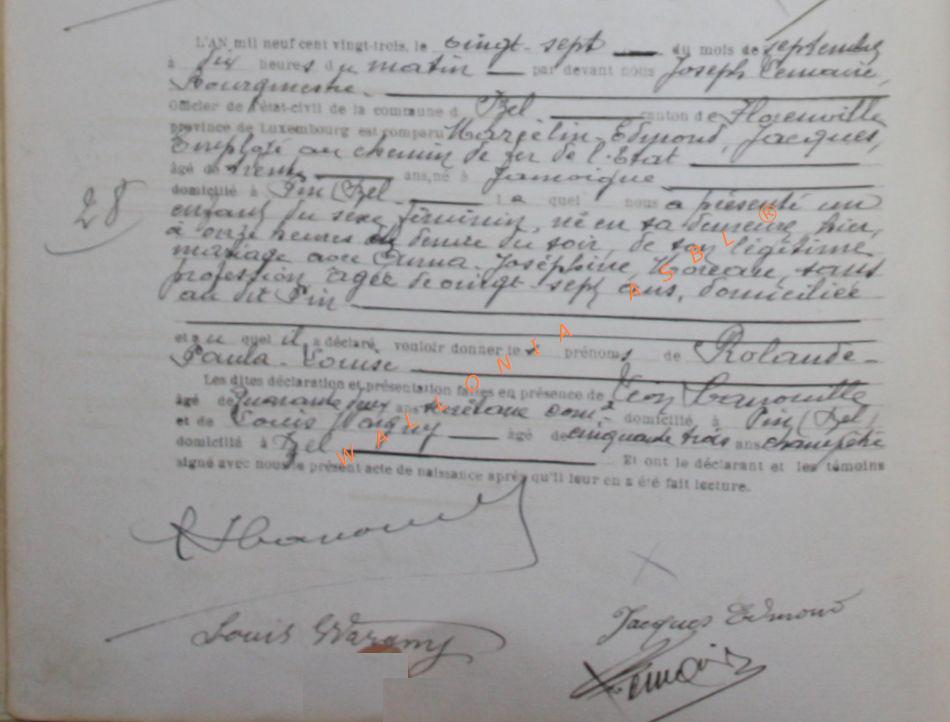 L'AN mil neuf cent vingt-trois, le vingt-sept du mois de septembre
à dix heures du matin par devant nous Joseph Lemaire,
Bourgmestre
Officier de l'état-civil de la commune d Izel canton de Florenville
province de Luxembourg est comparu Marcelin-Edmond, Jacques,
Employé au chemin de fer de l'Etat
âgé de trente ans, né à Jamoigne
domicilié à Pin (Izel) Le quel nous a présenté un
enfant du sexe féminin, né en sa demeure, hier,
à onze heures et demie du soir, de son légitime
mariage avec Anna-Joséphine, Moreau, sans
profession, âgée de vingt-sept ans, domiciliée
au dit Pin
et au quel il a déclaré vouloir donner les prénoms de Rolande-
Paula-Louise
Les dites déclaration et présentation faites en présence de Léon
âgé de quarante deux ans secrétaire domicilié à Pin (Izel)
et de Louis âgé de cinquante trois ans champêtre
domicilié à Izel Et ont le déclarant et les témoins
signé avec nous le présent acte de naissance après qu'il leur en a été fait lecture.
28
Louis
Jacques Edmond
Lemaire
WALLONIA ASBL ®